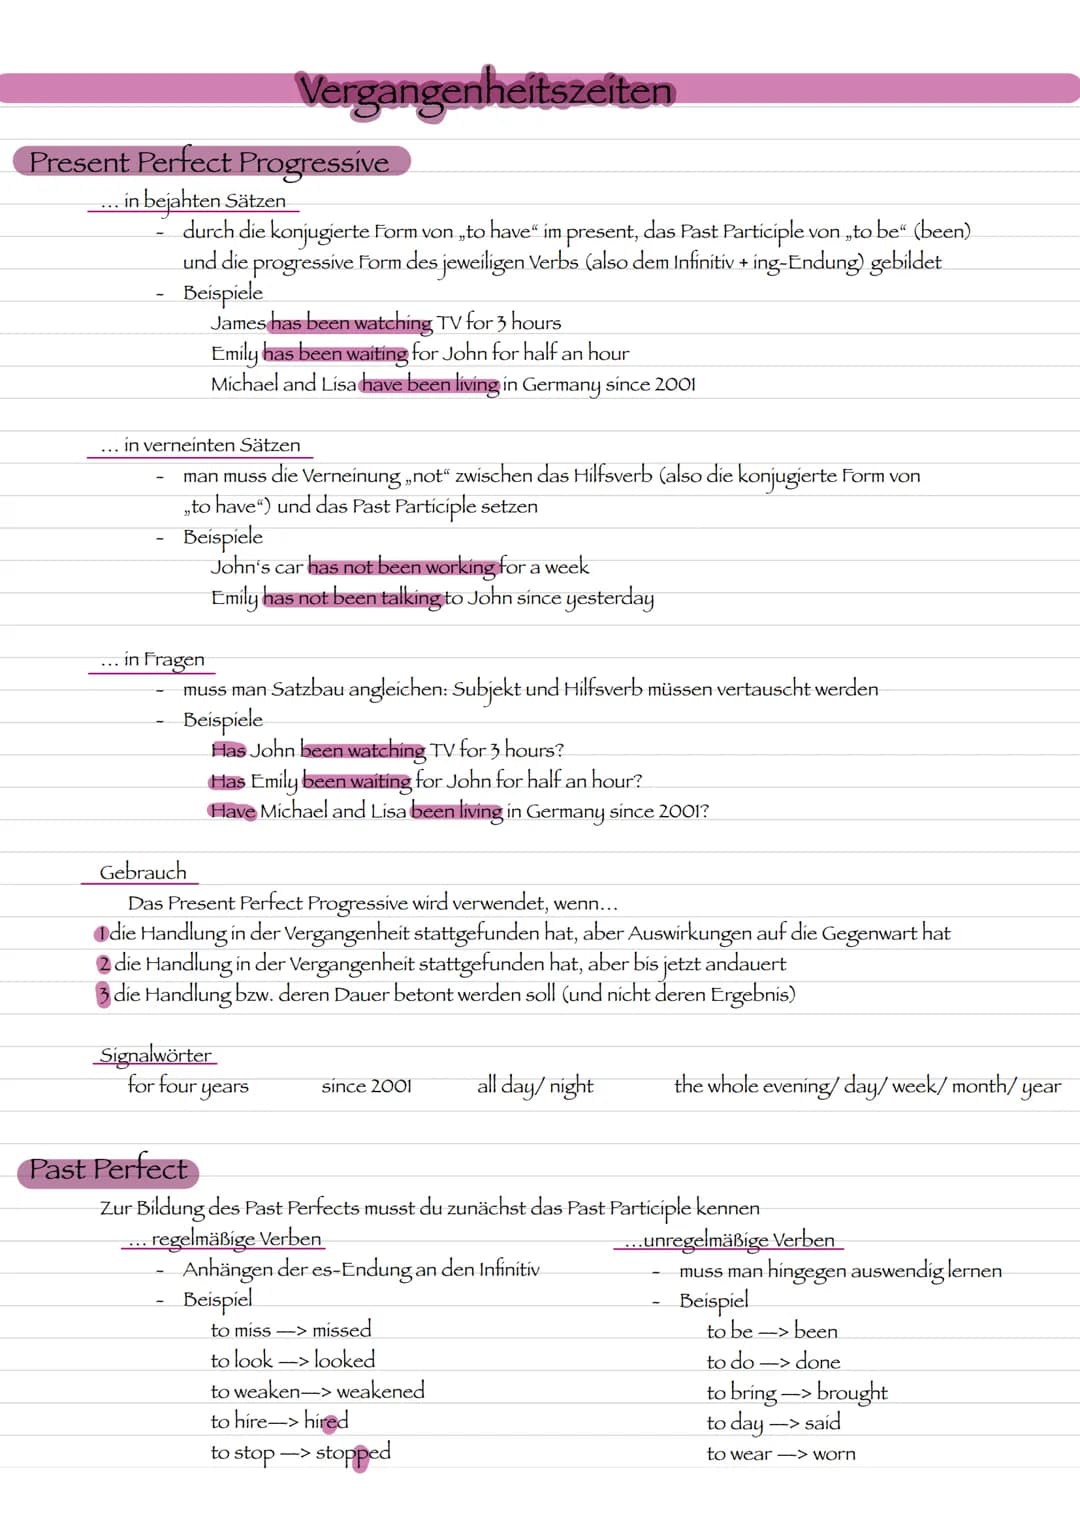 Vergangenheitszeiten
Present Perfect Progressive
... in bejahten Sätzen
- durch die konjugierte Form von „to have“ im present, das Past Participle von „to be“ (been)
und die progressive Form des jeweiligen Verbs (also dem Infinitiv + ing-Endung) gebildet
- Beispiele
James has been watching TV for 3 hours
Emily has been waiting for John for half an hour
Michael and Lisa have been living in Germany since 2001
... in verneinten Sätzen
- man muss die Verneinung „not“ zwischen das Hilfsverb (also die konjugierte Form von
„to have“) und das Past Participle setzen
- Beispiele
John's car has not been working for a week
Emily has not been talking to John since yesterday
... in Fragen
- muss man Satzbau angleichen: Subjekt und Hilfsverb müssen vertauscht werden
- Beispiele
Has John been watching TV for 3 hours?
Has Emily been waiting for John for half an hour?
Have Michael and Lisa been living in Germany since 2001?
Gebrauch
Das Present Perfect Progressive wird verwendet, wenn...
1 die Handlung in der Vergangenheit stattgefunden hat, aber Auswirkungen auf die Gegenwart hat
2 die Handlung in der Vergangenheit stattgefunden hat, aber bis jetzt andauert
3 die Handlung bzw. deren Dauer betont werden soll (und nicht deren Ergebnis)
Signalwörter
for four years since 2001 all day/ night the whole evening/ day/ week/ month/ year
Past Perfect
Zur Bildung des Past Perfects musst du zunächst das Past Participle kennen
... regelmäßige Verben
- Anhängen der es-Endung an den Infinitiv
- Beispiel
to miss —> missed
to look —> looked
to weaken—> weakened
to hire—> hired
to stop —> stopped
...unregelmäßige Verben
- muss man hingegen auswendig lernen
- Beispiel
to be —> been
to do —> done
to bring —> brought
to day —> said
to wear —> worn